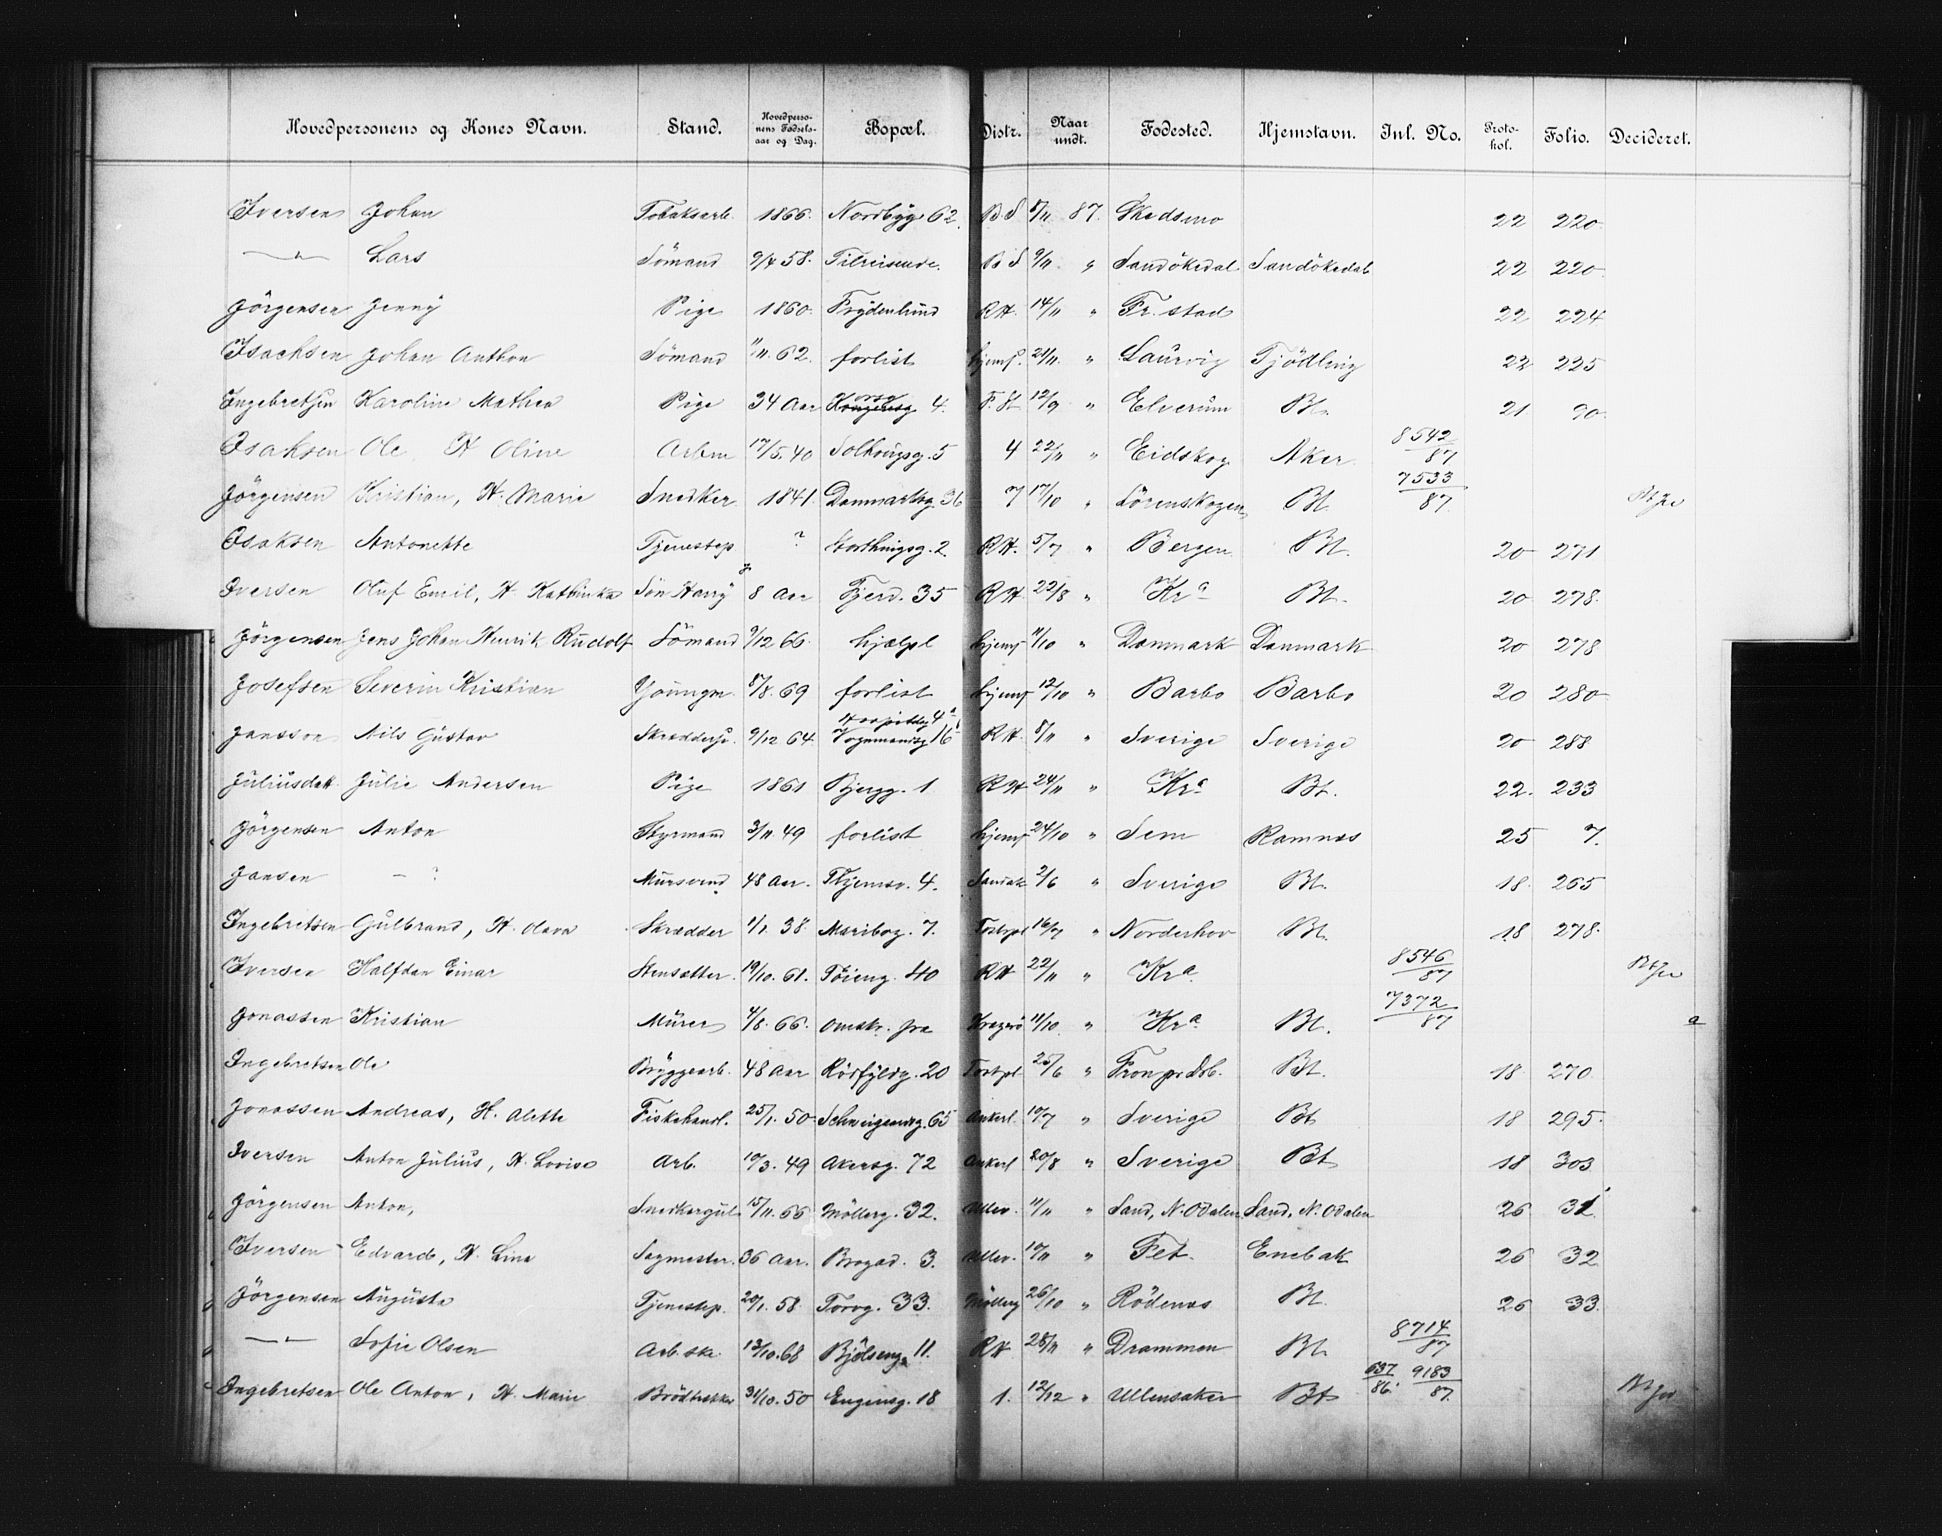 Hovedpersonens og Kones Navn. Stand. Hovedperso-nens Fødsels-aar og Dag. Bopæl. Distr. Naar undt. Fødested. Hjemstavn. Inl. No. Proto-kol. Folio. Decideret.
Iversen Johan Tobaksarb. 1866. Nordbyg. 62. 8/11 87. Skedsmo 22 220
—"— Lars Sömand 9/4 58. Tilreisende. 9/11 " Sandökedal Sandökedal 22 220
Jörgensen Jenny Pige 1860. Frydenlund RH. 14/11 " Fr.stad 22 224
Isachsen Johan Anthon Sömand 1/11. 62. forlist hjems. 21/11. " Laurvig Tjödling 22 225
Ingebretsen Karoline Mathea Pige 34 Aar 4. 12/9 " Elverum Bt. 21 90.
Isaksen Ole H Oline Arbm 17/5. 40 5 4 22/11 " Eidskog Aker 8542/87
Jörgensen Kristian, H. Marie Snedker 1841. Danmarksg. 36 7 17/10 " Sörenskogen Bt. 7533/87.
Isaksen Antonette Tjenestep ? Storthingsg. 2. RH. 5/7 " Bergen Bt. 20 271
Iversen Oluf Emil, H. Kathinka Sön Harry 8 Aar Fjerd. 35 RH. 22/8 " Kra Bt. 20 278.
Jörgensen Jens Johan Henrik Rudolf Sömand 9/12 66. hjælpl hjems 11/10 " Danmark Danmark 20 278
Josefsen Severin Kristian Youngm. 8/8. 69 forlist hjems 12/10 " Barbo Barbo 20 280
Jansson Nils Gustav Skræddersv. 9/12 64. Hospitalsg 4a Vognmandsg 16 RH. 8/11 " Sverige Sverige 20 288
Juliusdatt. Julie Andersen Pige 1861 Bjergg. 1 RH 24/11 " Kra Bt. 22. 233
Jörgensen Anton Styrmand 3/11 49 forlist hjems 24/10 " Sem Ramnæs 25 7.
Jansen — ? Mursvend 48 Aar. 4. 2/6 " Sverige Bt. 18. 265
Ingebretsen Gulbrand, H. Olava Skrædder 1/1. 38. Maribog. 7. 16/7 " Norderhov Bt. 18 278.
Iversen Halfdan Einar Stensætter. 19/10. 61. Töieng. 40 RH 22/11 " Kra. 8546/87
Jonassen Kristian Murer 4/8. 66. omstr. fra Kragerö 11/10 " Kra. Bt. 7372/87 a
Ingebretsen Ole Bryggearb. 48 Aar Rödfyldg. 20 25/6 " Bt. 18 270
Jonassen Andreas, H. Alette Fiskehandl. 25/1. 50. Schweigaardsg. 65 Ankerl. 10/7 " Sverige Bt 18 295.
Iversen Anton Julius, H. Lovise Arb. 10/3. 49 Akersg. 72 Ankerl 20/8 " Sverige Bt 18 303
Jörgensen Anton, Snedkergut 15/11. 66 Möllerg. 32. Ullev. 11/11 " Sand, N. Odalen Sand, N. Odalen 26 31
Iversen Edvard, H. Lina Sagmester. 36 Aar. Brogad. 3. Ullev. 10/11 " Fet. Enebak 26 32
Jörgensen Augusta Tjenestep. 20/1. 58. Torvg. 33. Möllerg 26/10 " Rödenæs Bt. 26 33.
—"— Sofie Olsen Arb.ske. 13/10. 68 Bjölseng. 11. RH 28/11 " Drammen Bt. 8714/87
Ingebretsen Ole Anton, H. Marie 31/10. 50 Engensg. 18 1. 12/12 " Ullensaker Bt 637/86. 9183/87.